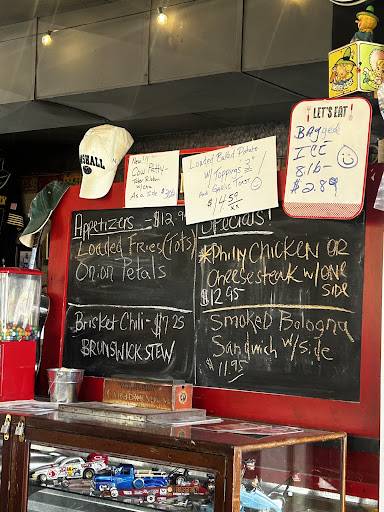 MARSHALL
New!!
Cow Patty-
As a side
Loaded Baked Potato
W/Toppings
And Garlic Toast
$14.50
LET'S EAT!
BAgged
ICE
8lb-
$2.89
Appetizers - $12.9
Loaded Fries(Tots)
Onion Petals
Brisket Chili - $7.25
BRUNSWICK STEW
Specials!
*Philly CHICKEN OR
Cheesesteak w/ONE
$12.95 SIDE
Smoked Bologna
Sandwich w/side
$11.95